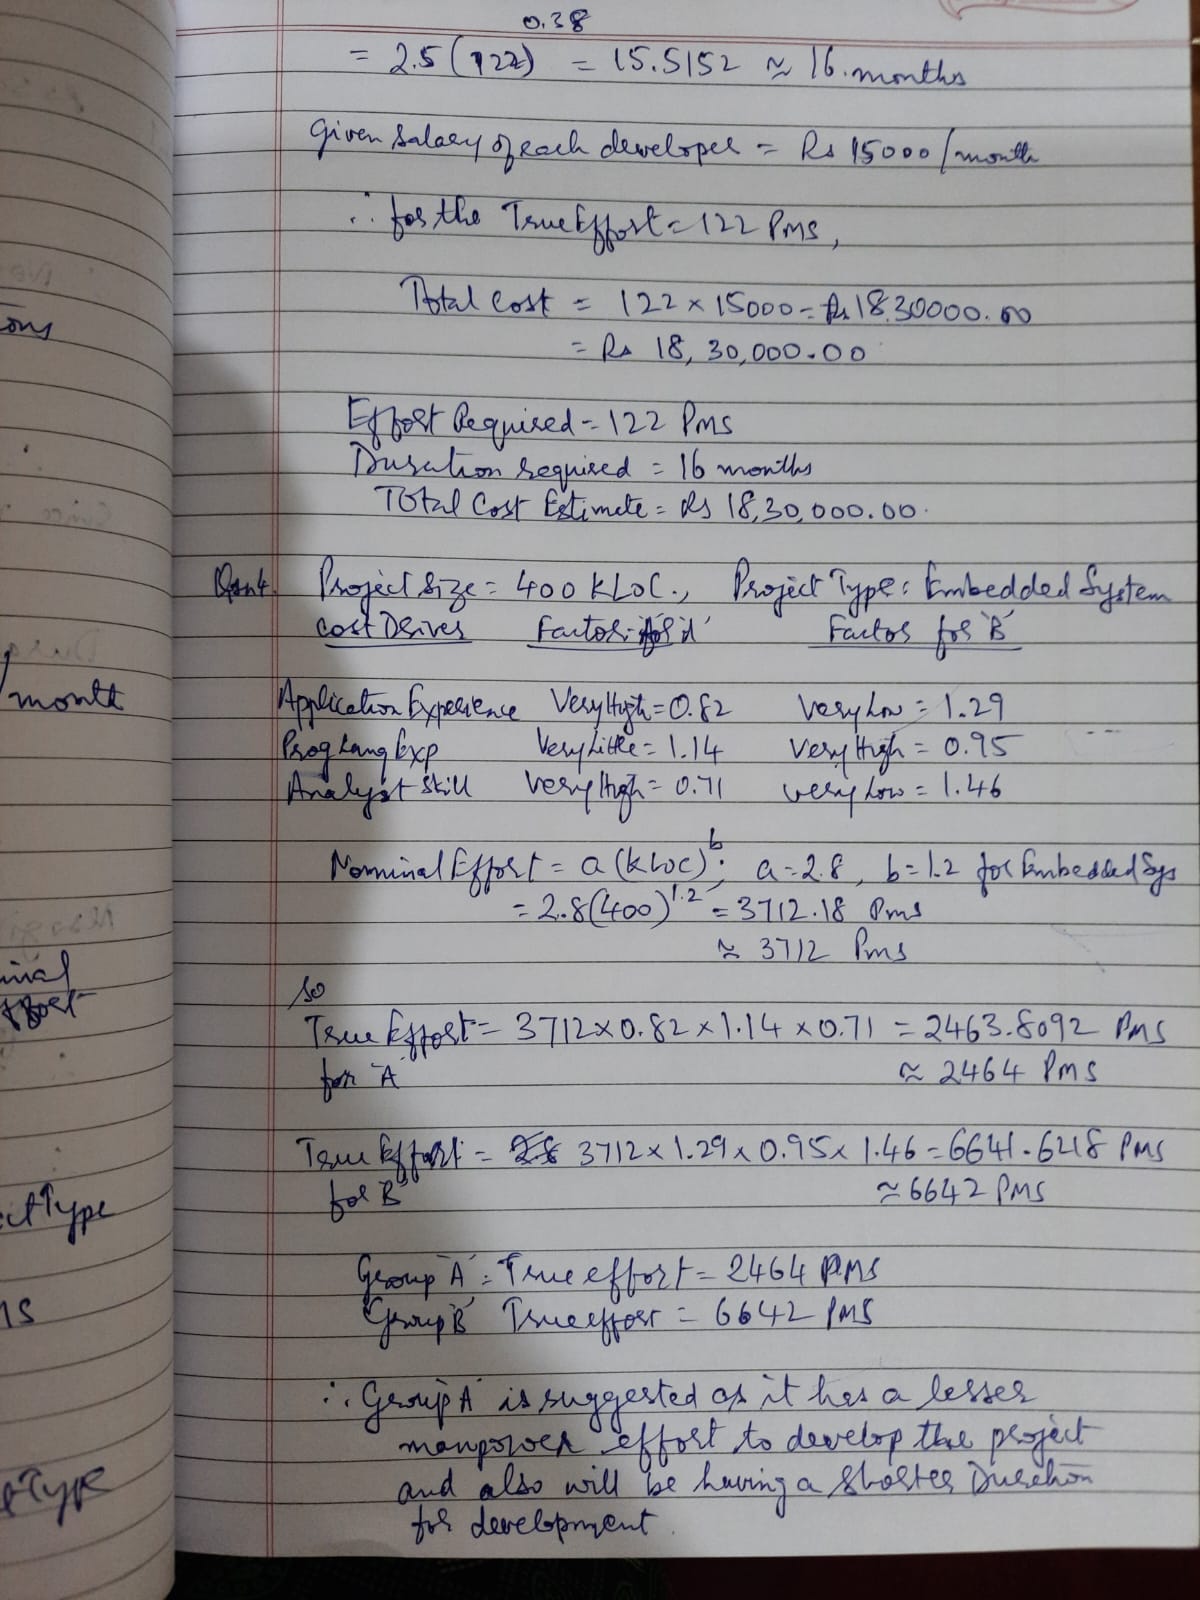 = 2.5 (122)^0.38 = 15.5152 ≈ 16. months
Given Salary of each developer = Rs 15000/month
∴ for the True Effort = 122 PMS,
Total Cost = 122 × 15000 = Rs 18,30000.00
= Rs 18,30,000.00
Effort Required = 122 PMS
Duration required = 16 months
TOtal Cost Estimate = Rs 18,30,000.00.
Qsn4. Project Size = 400 KLOC., Project Type: Embedded System
Cost Drives Factors for 'A' Factos for 'B'
Application Experience Very High = 0.82 Very Low = 1.29
Prog Lang Exp Very Little = 1.14 Very High = 0.95
Analyst Skill Very High = 0.71 Very Low = 1.46
Nominal Effort = a (KLOC)^b; a = 2.8, b = 1.2 for Embedded Sys
= 2.8(400)^1.2 = 3712.18 PMS
≈ 3712 PMS
So
True Effort = 3712×0.82×1.14×0.71 = 2463.8092 PMS
for 'A' ≈ 2464 PMS
True Effort = 3712×1.29×0.95×1.46 = 6641.6218 PMS
for 'B' ≈ 6642 PMS
Group 'A' = True effort = 2464 PMS
Group 'B' True effort = 6642 PMS
∴ Group 'A' is suggested as it has a lesser
manpower effort to develop the project
and also will be having a Shorter Duration
for development.
ons
/month
inal
effort
ect Type
MS
eType